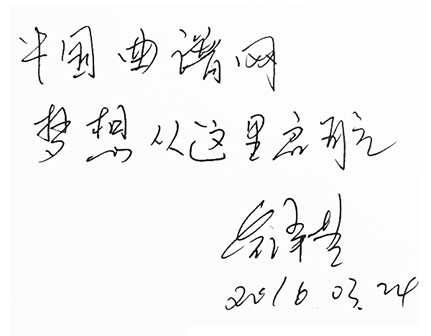 中国曲谱网
梦想从这里启航
2016.03.24